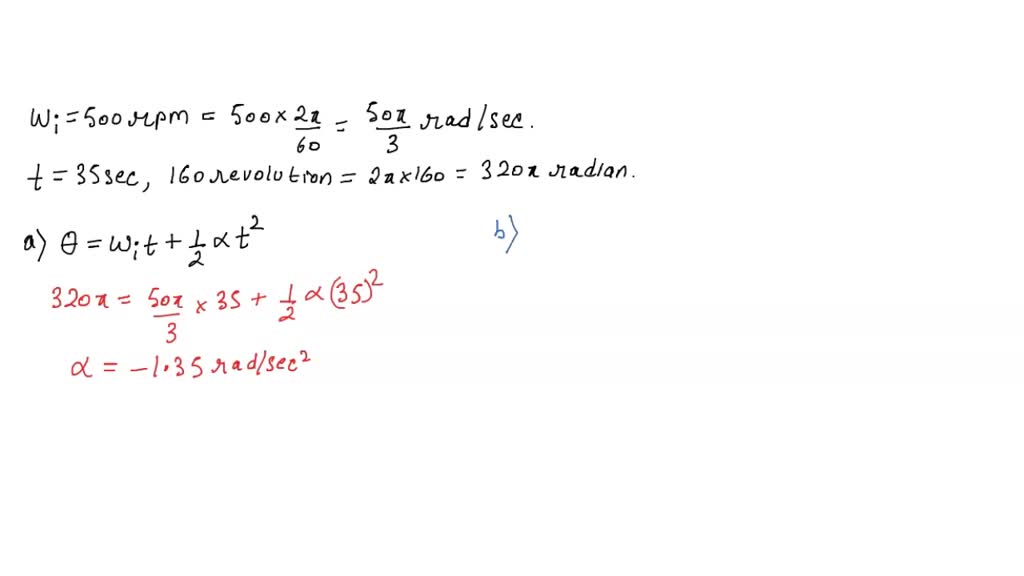 ωi = 500 rpm = 500 × 2π/60 = 50π/3 rad/sec.
t = 35 sec, 160 revolution = 2π × 160 = 320π radian.
a) θ = ωi t + 1/2 α t²
b)
320π = 50π/3 × 35 + 1/2 α (35)²
α = -1.35 rad/sec²